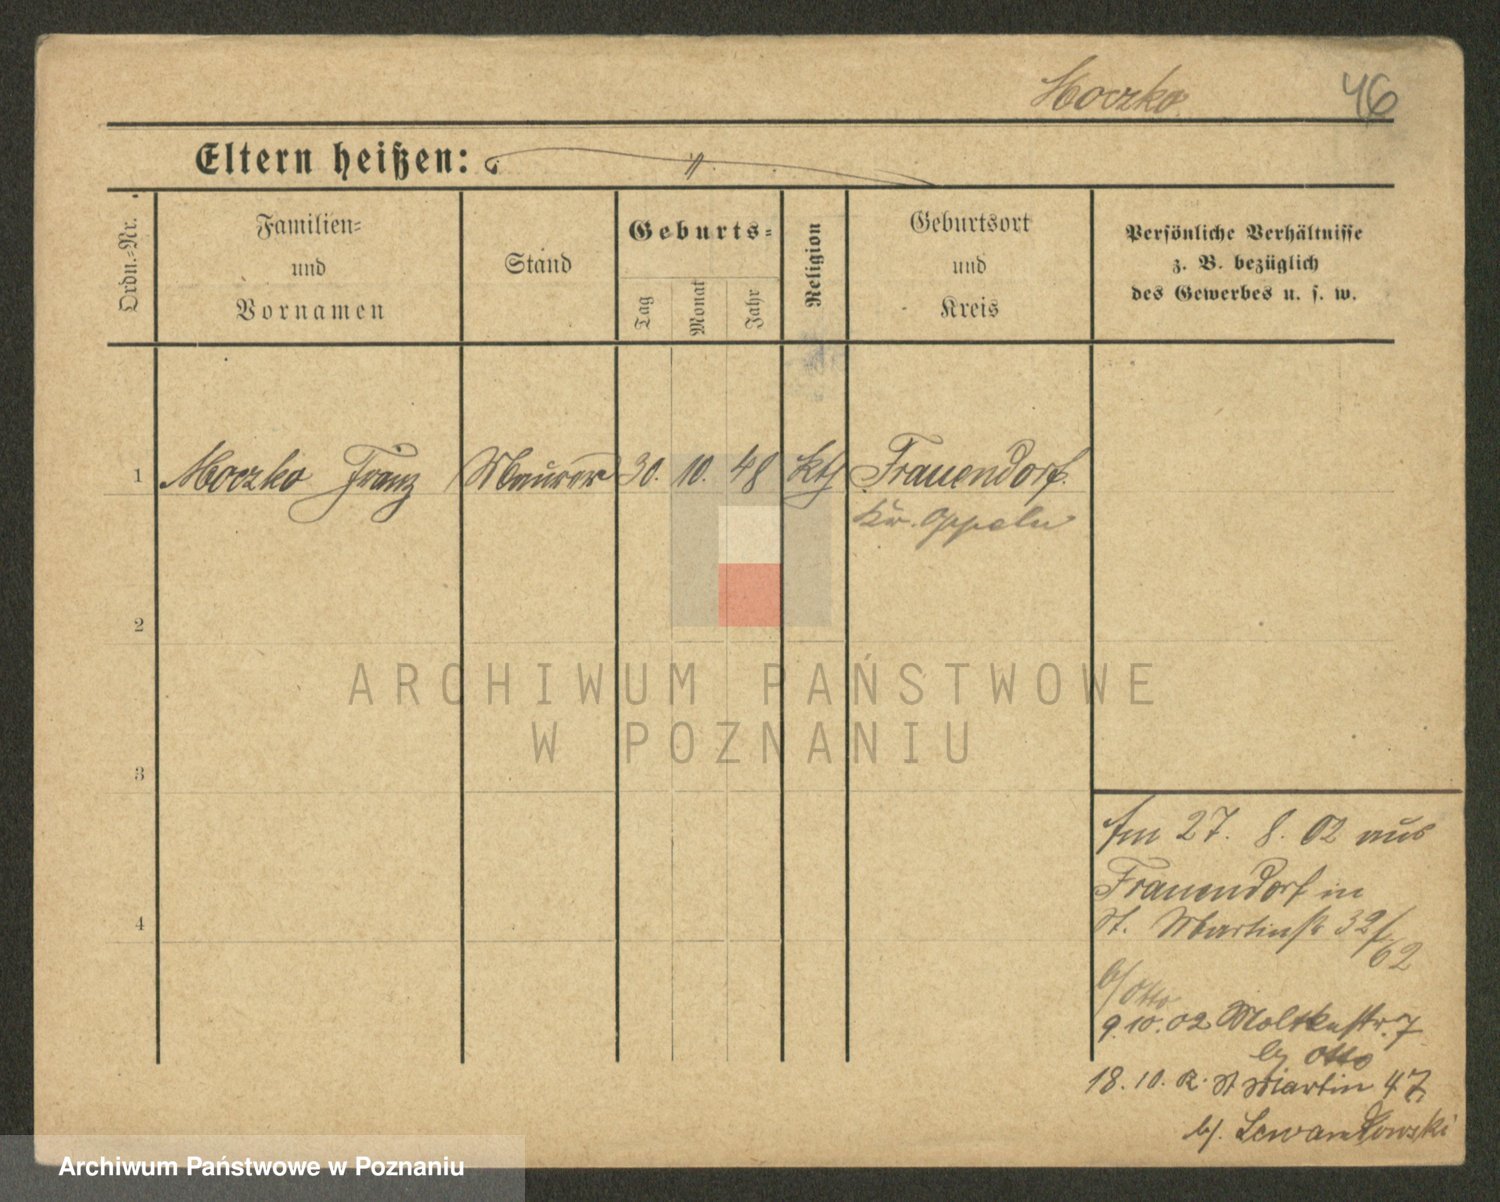 Moczko 46
Eltern heißen:
Ordn.-Nr.
Familien-
und
Vornamen
Stand
Geburts-
Tag
Monat
Jahr
Religion
Geburtsort
und
Kreis
Persönliche Verhältnisse
z. B. bezüglich
des Gewerbes u. s. w.
1 Moczko Franz Maurer 30. 10. 48 kth Frauendorf.
Kr. Oppeln
2
3
4
Am 27. 8. 02 aus
Frauendorf in
St. Martinstr 32/
62
b/ Otto
9.10.02 Moltkestr. 7
b/ Otto
18. 10. St Martin 47
b/. Lewandowski
ARCHIWUM PAŃSTWOWE
W POZNANIU
Archiwum Państwowe w Poznaniu